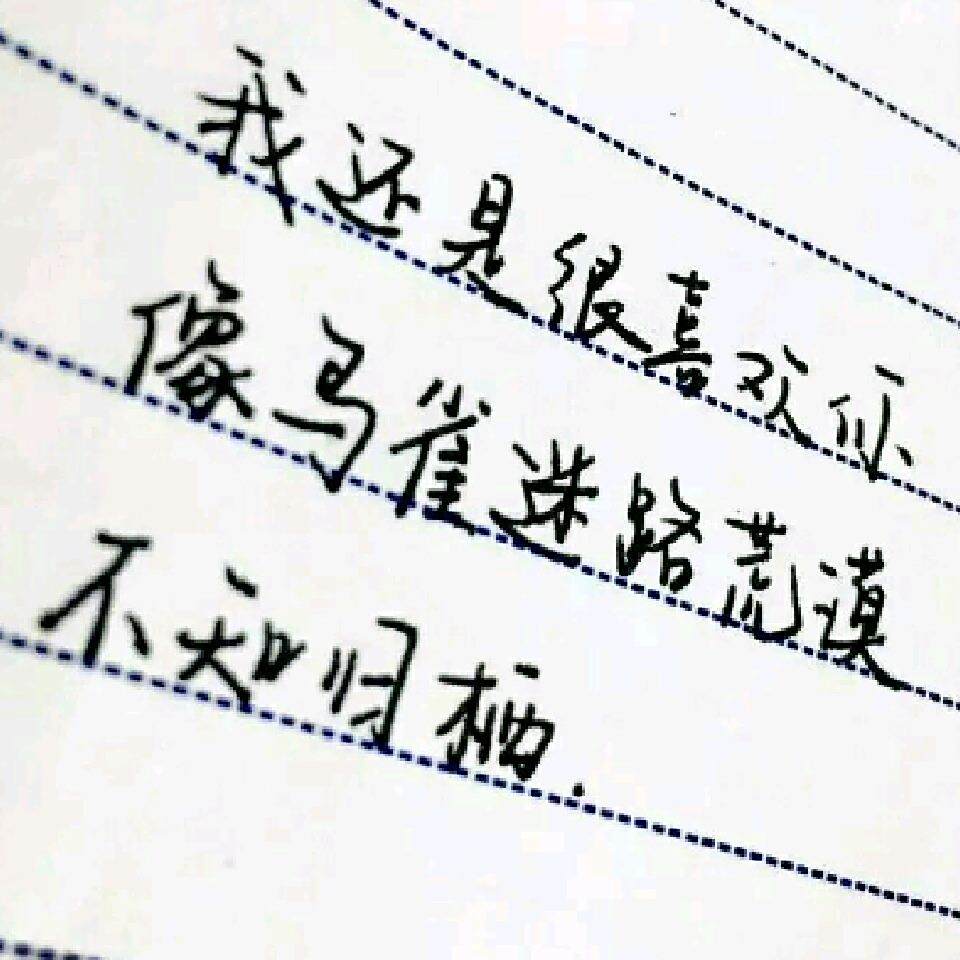 我还是很喜欢你
像马雀迷路荒漠
不知归栖.